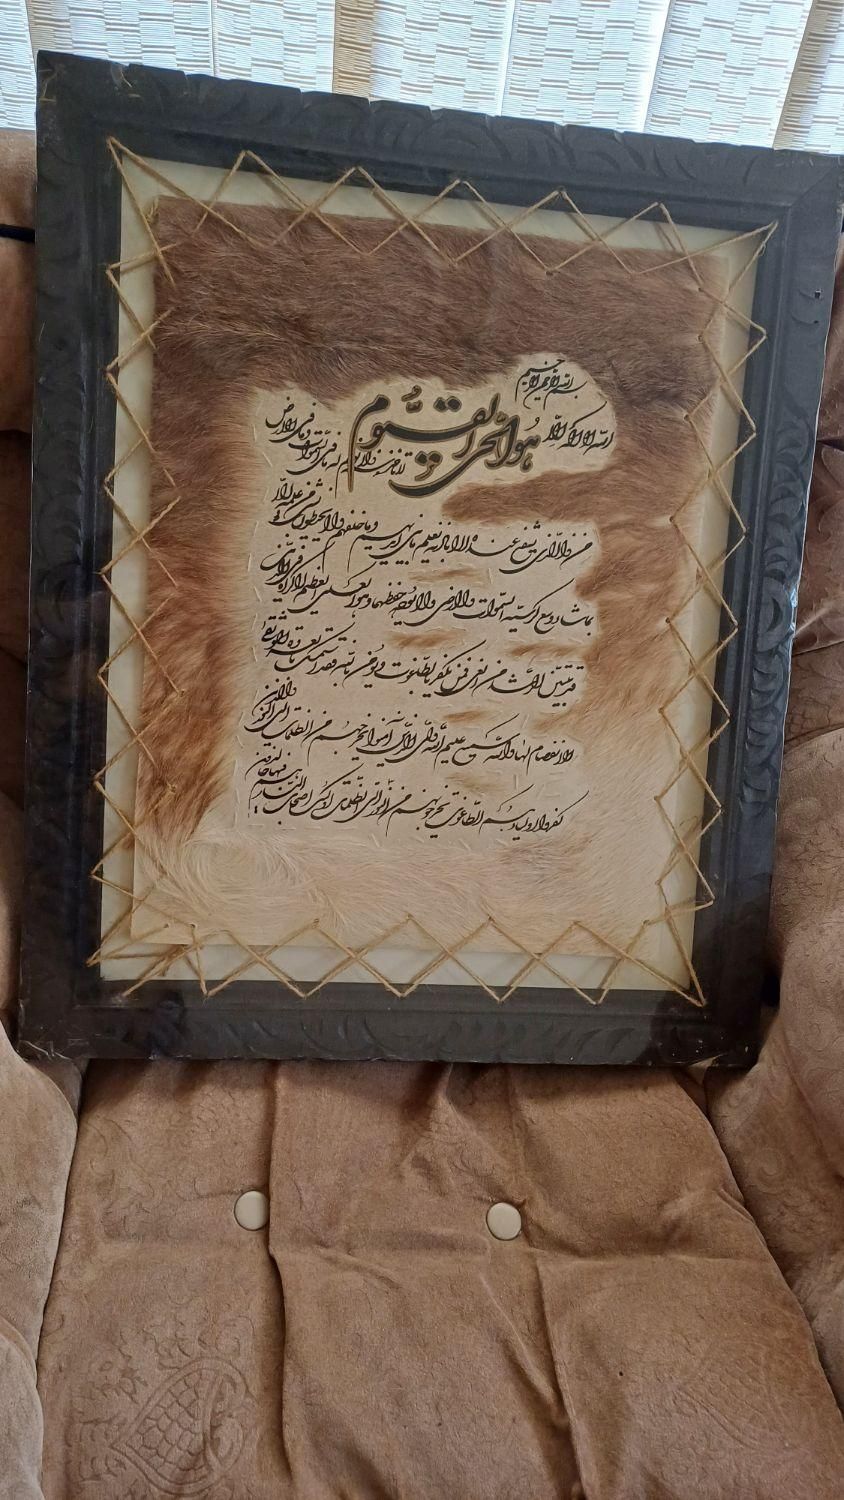 بسم الله الرحمن الرحیم
الله لا اله الا هو الحی القیوم
لا تاخذه سنة و لا نوم له ما فی السموات و ما فی الارض
من ذا الذی یشفع عنده الا باذنه یعلم ما بین ایدیهم و ما خلفهم و لا یحیطون بشیء من علمه الا
بما شاء وسع کرسیه السموات و الارض و لا یؤده حفظهما و هو العلی العظیم لا اکراه فی الدین
قد تبین الرشد من الغی فمن یکفر بالطاغوت و یؤمن بالله فقد استمسک بالعروة الوثقی
لا انفصام لها و الله سمیع علیم الله ولی الذین آمنوا یخرجهم من الظلمات الی النور و الذین
کفروا اولیاؤهم الطاغوت یخرجونهم من النور الی الظلمات اولئک اصحاب النار هم فیها خالدون